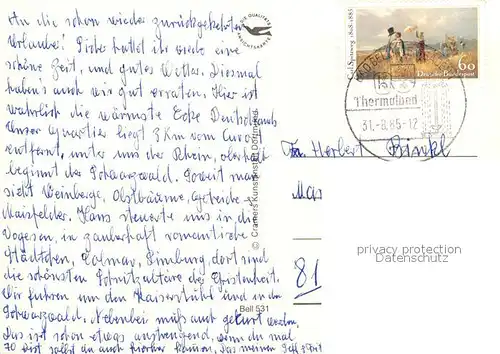 An die schon wieder zurückgekehrten
Urlauber! Sicher hattet ihr wieder eine
schöne Zeit, und gutes Wetter. Diesmal
haben's auch wir gut erraten. Hier ist
wahrlich die wärmste Ecke Deutschlands
Unser Quartier liegt 3 Km vom Curort
entfernt, unter uns der Rhein, oberhalb
beginnt der Schwarzwald. Soweit man
sieht Weinberge, Obstbäume, Getreide u.
Maisfelder. Hans steuerte uns in die
Vogesen, in zauberhaft romantische
Städtchen, Colmar, Limburg, dort sind
die schönsten Schnitzaltäre der Christenheit.
Wir fuhren um den Kaiserstuhl und in den
Schwarzwald. Nebenbei muß auch gekurt werden.
Das ist schon etwas anstrengend, wenn du mal
70 bist sollst du auch hierher kommen. Das meinen
DIE QUALITÄTS
ANSICHTSKARTE
© Cramers Kunstanstalt Dortmund
Bell 531
Carl Spitzweg 1808-1885
60
Deutsche Bundespost
Thermalbad
31.-8.85-12
Fam. Herbert Binkl
81
privacy protection
Datenschutz